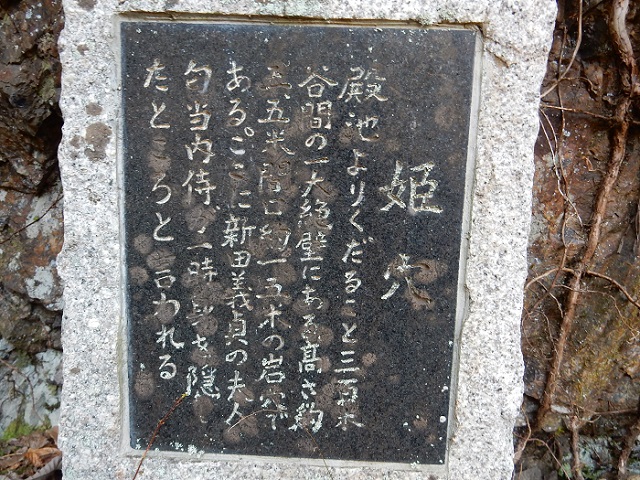 姫穴
殿池よりくだること三百米
谷間の一大絶壁にある高さ約
三、五米間口約一、五米の岩穴で
ある。ここに新田義貞の夫人
勾当内侍が一時身を隠し
たところと言われる